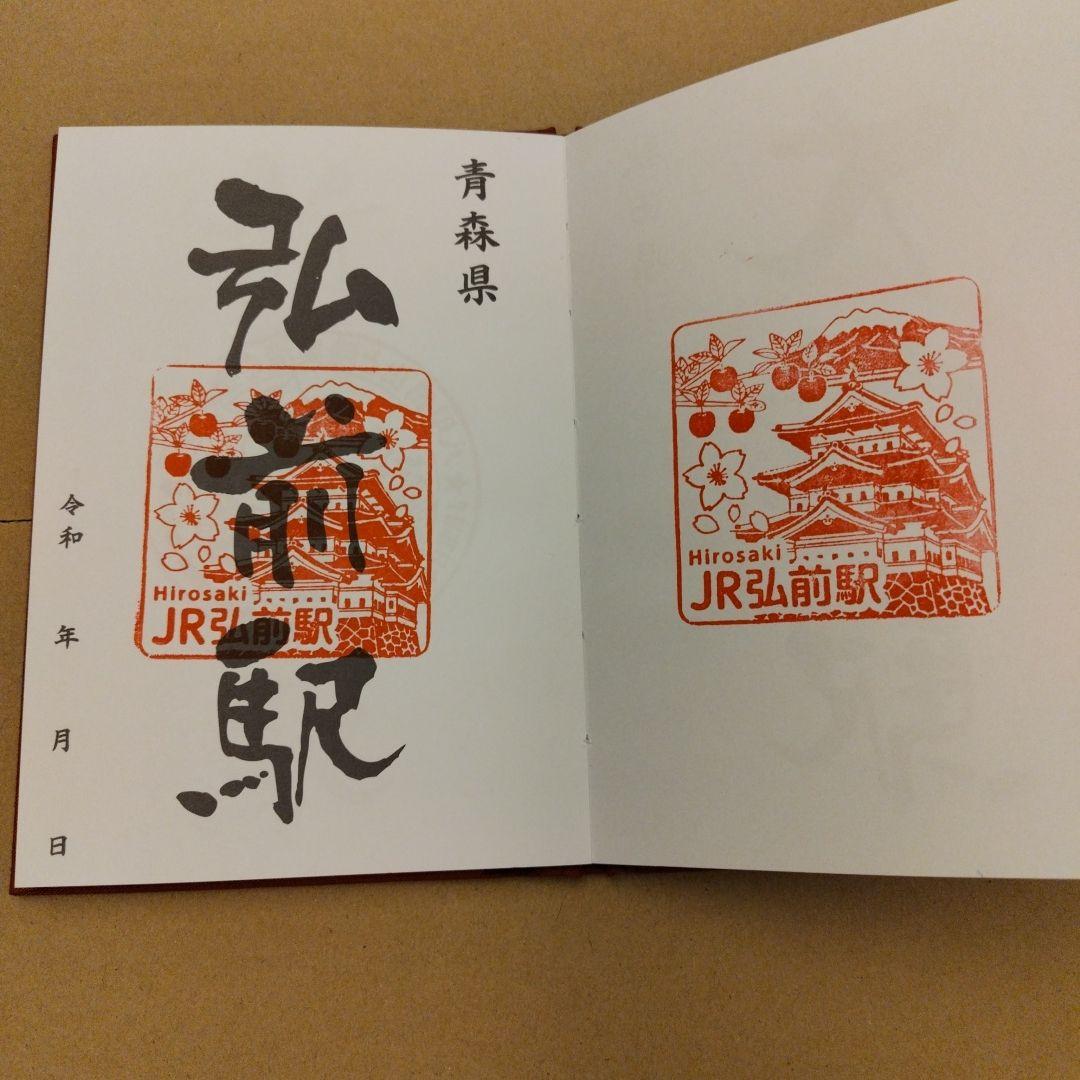 青森県
弘前駅
令和 年 月 日
Hirosaki
JR弘前駅
Hirosaki
JR弘前駅